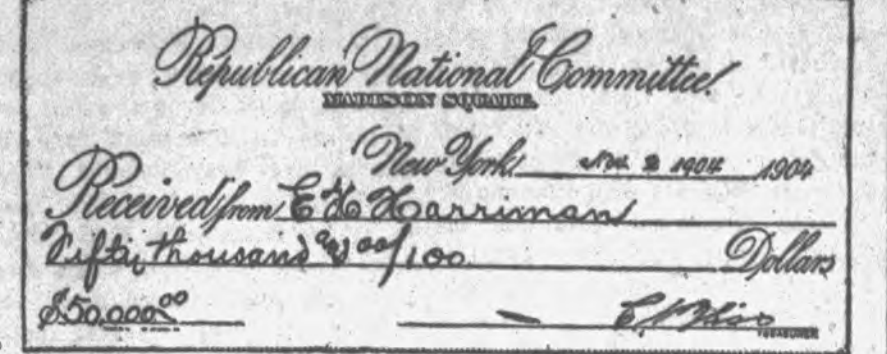 Republican National Committee.
MADISON SQUARE.
New York, Nov 2 1904 1904
Received from E H Harriman
Fifty thousand and 00/100 Dollars
$50,000.00 C N Bliss
TREASURER